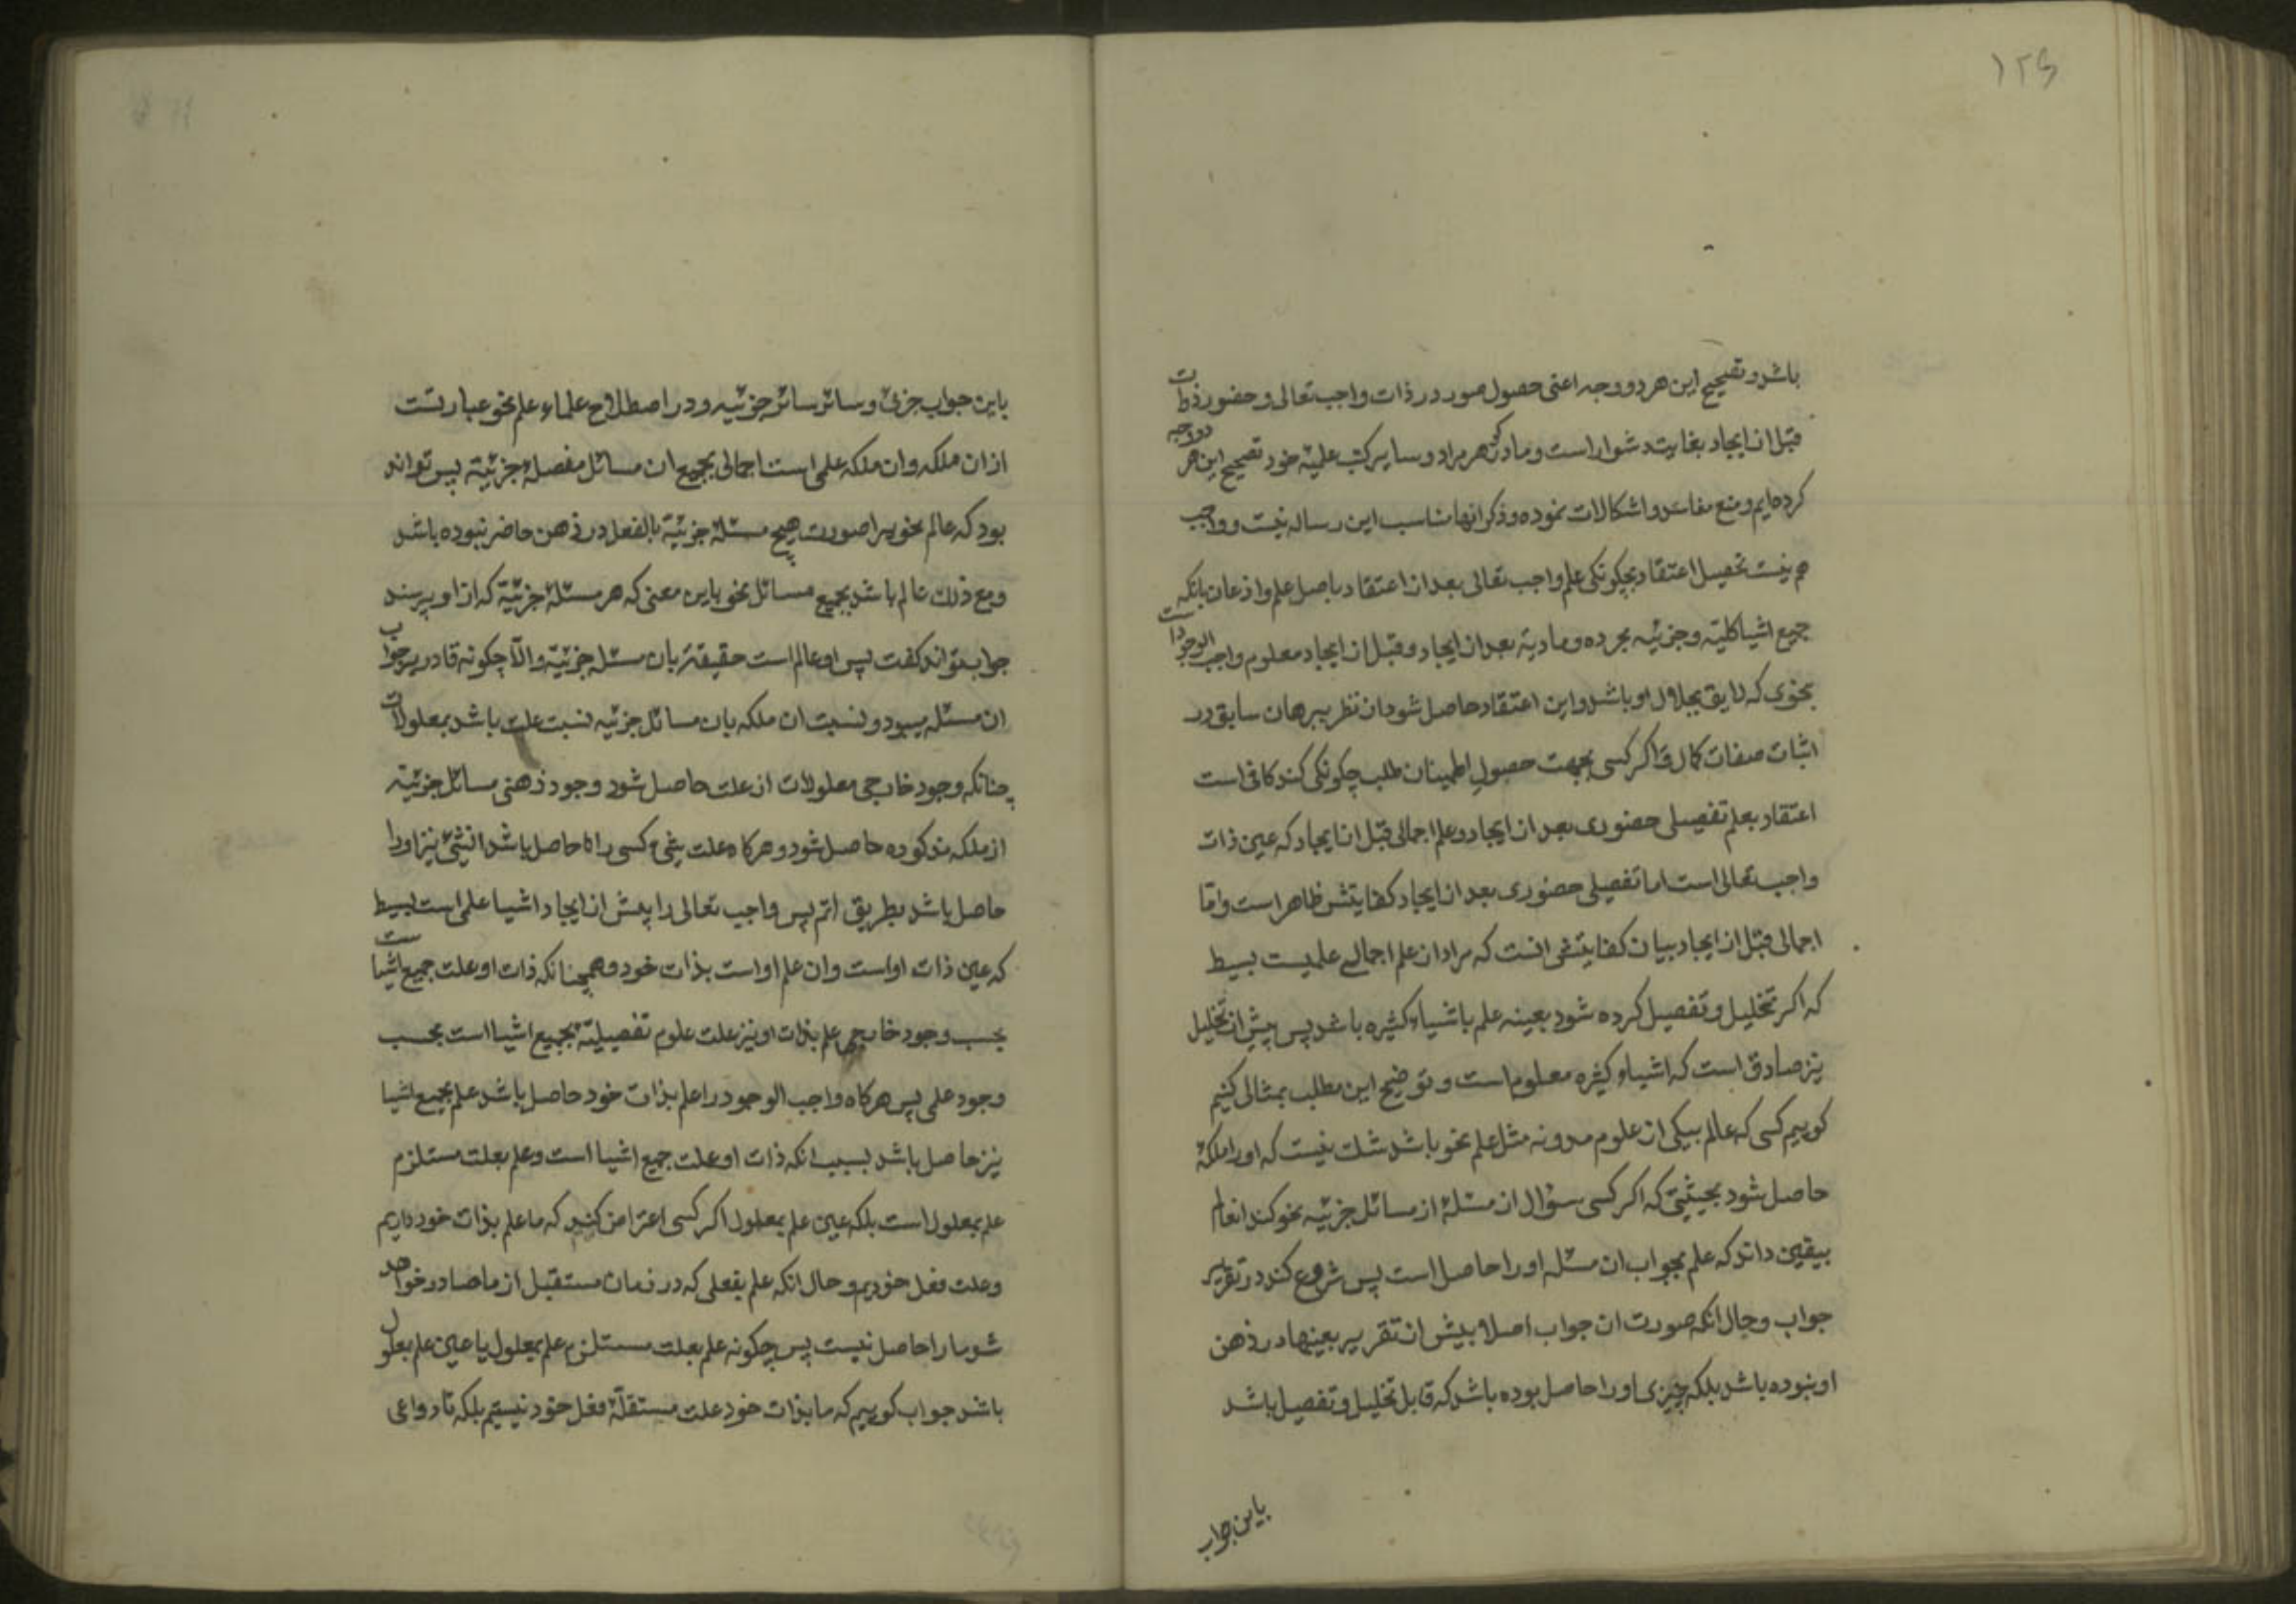 ۱۲۵
باشد و تصحیح این هر دو وجه اعنی حصول صور در ذات واجب تعالی و حضور ذوات
قبل از ایجاد بغایت دشوار است و ما در گوهر مراد و سایر کتب علمیّه خود تصحیح این هر دو وجه
کرده‌ایم و منع مفاسد و اشکالات نموده و ذکر انها مناسب این رساله نیست و واجب
هم نیست تحصیل اعتقاد بچگونکی علم واجب تعالی بعد از اعتقاد باصل علم و اذعان بانکه
جمیع اشیا کلیّه و جزئیه مجرده و مادیّه بعد از ایجاد و قبل از ایجاد معلوم واجب الوجود است
بنحوی که لایق بجلال او باشد و این اعتقاد حاصل شود از نظر ببرهان سابق در
اثبات صفات کمال و اگر کسی بجهت حصول اطمینان طلب چکونکی کند کافی است
اعتقاد بعلم تفصیلی حضوری بعد از ایجاد و علم اجمالی قبل از ایجاد که عین ذات
واجب تعالی است اما تفصیلی حضوری بعد از ایجاد کفایتش ظاهر است و امّا
اجمالی قبل از ایجاد بیان کفایتش انست که مراد از علم اجمالی علمیست بسیط
که اکر تحلیل و تفصیل کرده شود بعینه علم باشیاء کثیره باشد پس پیش از تحلیل
نیز صادق است که اشیاء کثیره معلوم است و توضیح این مطلب بمثالی کنیم
کوییم کسی که عالم بیکی از علوم مدونه مثل علم نحو باشد شک نیست که او را ملکهٔ
حاصل شود بحیثیتی که اکر کسی سؤال از مسئلهٔ از مسائل جزئیه نحو کند انعالم
بیقین داند که علم بجواب ان مسئله او را حاصل است پس شروع کند در تقریر
جواب و حال انکه صورت ان جواب اصلا پیش از تقریر بعینها در ذهن
او نبوده باشد بلکه چیزی او را حاصل بوده باشد که قابل تحلیل و تفصیل باشد
باین جواب
باین جواب جزئی و سائر سائر جزئیه و در اصطلاح علماء علم نحو عبارتست
از ان ملکه و ان ملکه علمی است اجمالی بجمیع ان مسائل مفصلهٔ جزئیّه پس تواند
بود که عالم نحو را صورت هیچ مسئلهٔ جزئیّه بالفعل در ذهن حاضر نبوده باشد
و مع ذلک عالم باشد بجمیع مسائل نحو باین معنی که هر مسئلهٔ جزئیّه که از او پرسند
جواب تواند کفت پس او عالم است حقیقة بان مسئله جزئیّه و الّا چکونه قادر بر جواب
ان مسئله میبود و نسبت ان ملکه بان مسائل جزئیه نسبت علت باشد بمعلولات
چنانکه وجود خارجی معلولات از علت حاصل شود وجود ذهنی مسائل جزئیّه
از ملکه مذکوره حاصل شود و هرکاه علت شیء کسی را حاصل باشد انشئ نیز او را
حاصل باشد بطریق اتم پس واجب تعالی را پیش از ایجاد اشیا علمی است بسیط
که عین ذات او است و ان علم او است بذات خود و همچنانکه ذات او علت جمیع اشیاست
بحسب وجود خارجی علم بذات او نیز علت علوم تفصیلیّه بجمیع اشیا است بحسب
وجود علمی پس هرکاه واجب الوجود را علم بذات خود حاصل باشد علم بجمیع اشیا
نیز حاصل باشد بسبب انکه ذات او علت جمیع اشیا است و علم بعلت مستلزم
علم بمعلول است بلکه عین علم بمعلول اکر کسی اعتراض کند که ما علم بذات خود داریم
و علت فعل خودیم و حال انکه علم بفعلی که در زمان مستقبل از ما صادر خواهد
شد ما را حاصل نیست پس چکونه علم بعلت مستلزم علم بمعلول یا عین علم بمعلول
باشد جواب کوییم که ما بذات خود علت مستقلّهٔ فعل خود نیستیم بلکه تا دواعی